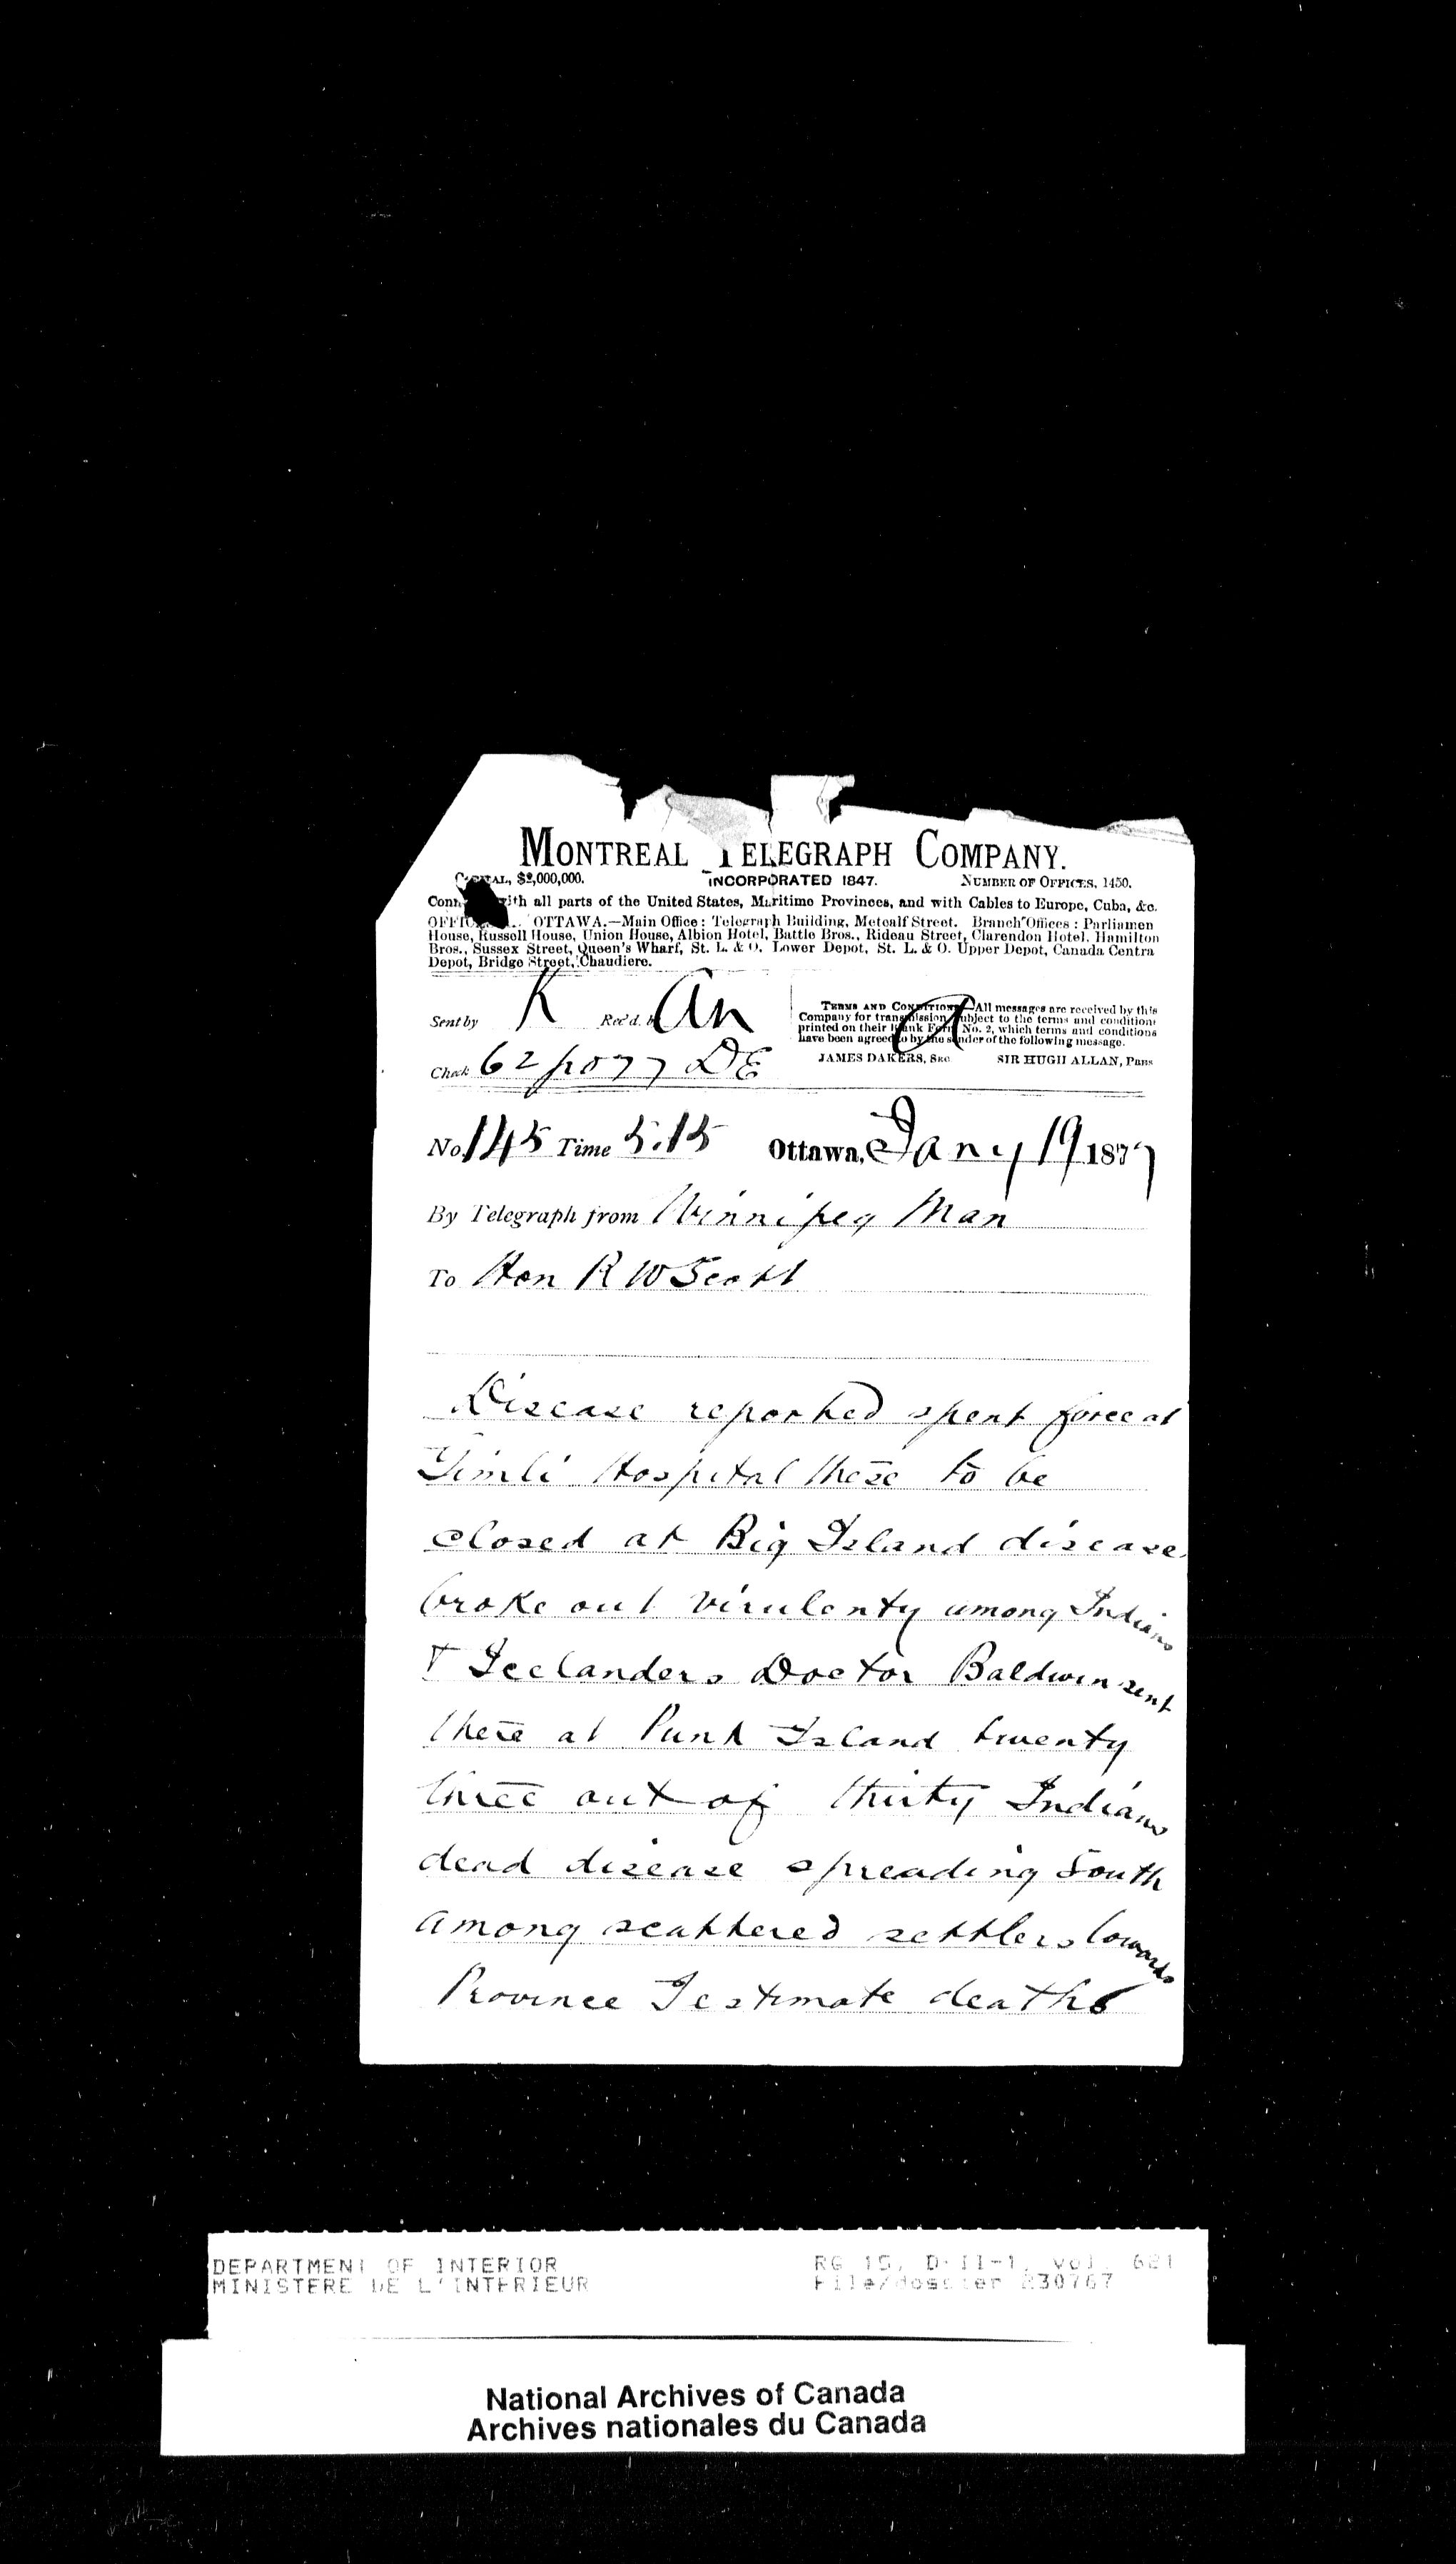 MONTREAL TELEGRAPH COMPANY.
CAPITAL, $2,000,000. INCORPORATED 1847. NUMBER OF OFFICES, 1450.
Conn ith all parts of the United States, Maritime Provinces, and with Cables to Europe, Cuba, &c.
OFFIC OTTAWA.—Main Office: Telegraph Building, Metcalf Street. Branch Offices: Parliamen
House, Russell House, Union House, Albion Hotel, Battle Bros., Rideau Street, Clarendon Hotel, Hamilton
Bros., Sussex Street, Queen's Wharf, St. L. & O. Lower Depot, St. L. & O. Upper Depot, Canada Centra
Depot, Bridge Street, Chaudiere.
Sent by K Rec'd. b An
TERMS AND CONDITIONS—All messages are received by this
Company for transmission subject to the terms and conditions
printed on their Blank Form No. 2, which terms and conditions
have been agreed to by the sender of the following message.
JAMES DAKERS, SEC. SIR HUGH ALLAN, PRES
A
Check 62 DE
No. 145 Time 5.15 Ottawa, Jany 19 1877
By Telegraph from Winnipeg Man
To Hon R W Scott
Disease reported spent force at
Gimli Hospital there to be
closed at Big Island disease
broke out virulenty among Indians
& Icelanders Doctor Baldwin sent
there at Punk Island twenty
three out of thirty Indians
dead disease spreading South
among scattered settlers towards
Province I estimate deaths
DEPARTMENT OF INTERIOR
MINISTERE DE L'INTERIEUR
RG 15, D-II-1, vol. 621
File/dossier 230767
National Archives of Canada
Archives nationales du Canada